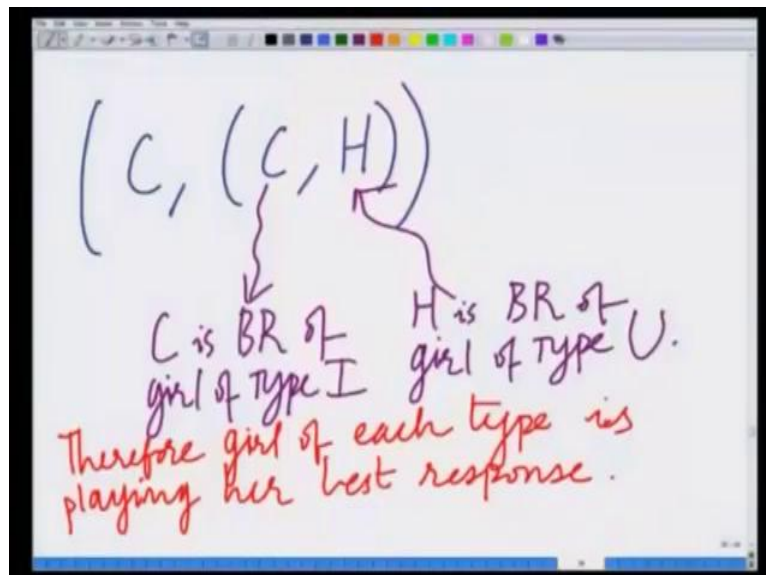 (C, (C, H))
C is BR of
girl of Type I
H is BR of
girl of Type U.
Therefore girl of each type is
playing her best response.